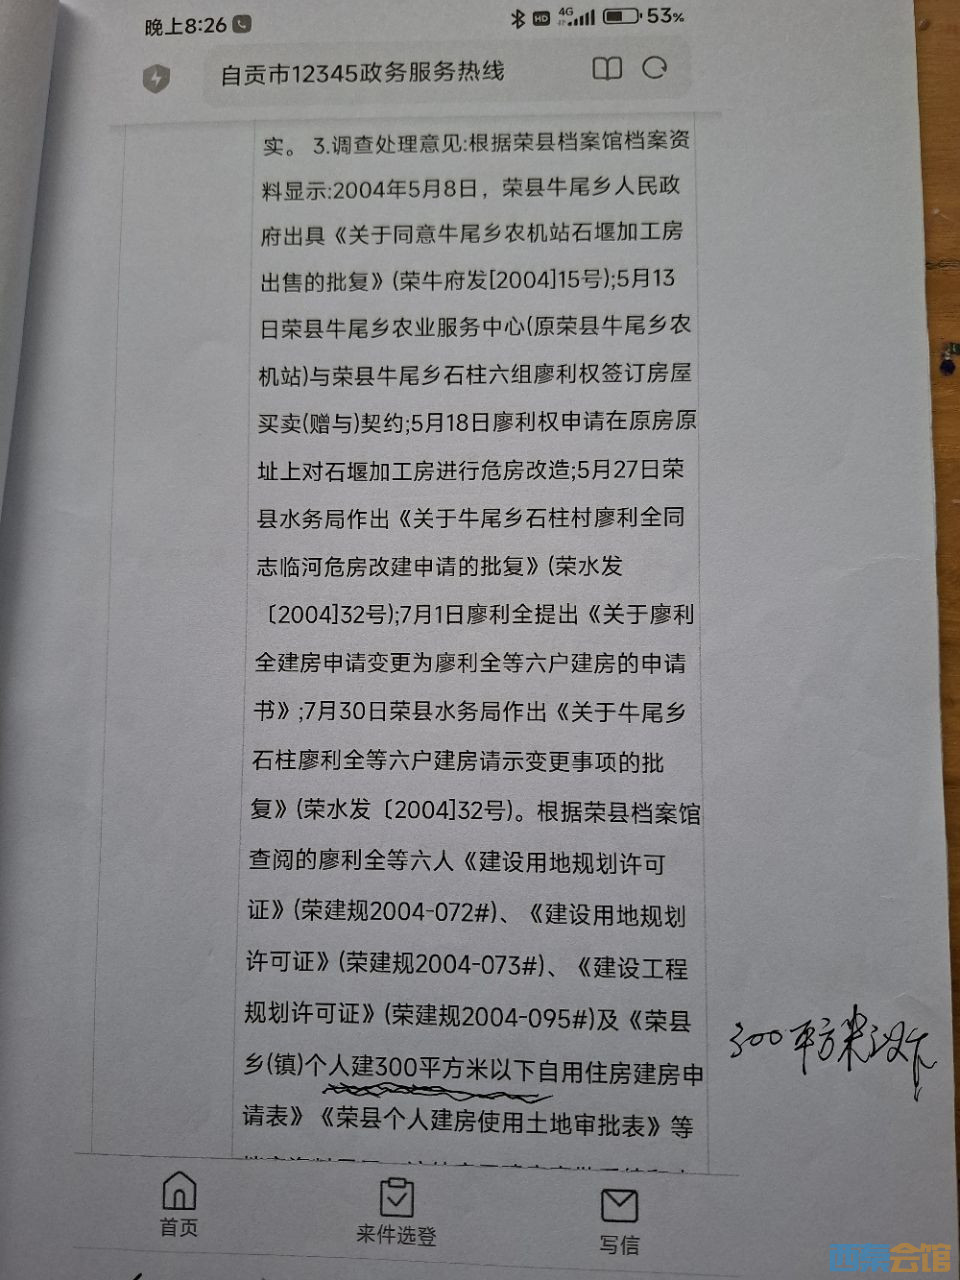 晚上8:26
HD 4G 53%
自贡市12345政务服务热线
实。 3.调查处理意见:根据荣县档案馆档案资
料显示:2004年5月8日，荣县牛尾乡人民政
府出具《关于同意牛尾乡农机站石堰加工房
出售的批复》(荣牛府发[2004]15号);5月13
日荣县牛尾乡农业服务中心(原荣县牛尾乡农
机站)与荣县牛尾乡石柱六组廖利权签订房屋
买卖(赠与)契约;5月18日廖利权申请在原房原
址上对石堰加工房进行危房改造;5月27日荣
县水务局作出《关于牛尾乡石柱村廖利全同
志临河危房改建申请的批复》(荣水发
〔2004]32号);7月1日廖利全提出《关于廖利
全建房申请变更为廖利全等六户建房的申请
书》;7月30日荣县水务局作出《关于牛尾乡
石柱廖利全等六户建房请示变更事项的批
复》(荣水发〔2004]32号)。根据荣县档案馆
查阅的廖利全等六人《建设用地规划许可
证》(荣建规2004-072#)、《建设用地规划
许可证》(荣建规2004-073#)、《建设工程
规划许可证》(荣建规2004-095#)及《荣县
乡(镇)个人建300平方米以下自用住房建房申
300平方米以下
请表》《荣县个人建房使用土地审批表》等
首页
来件选登
写信
西秦会馆